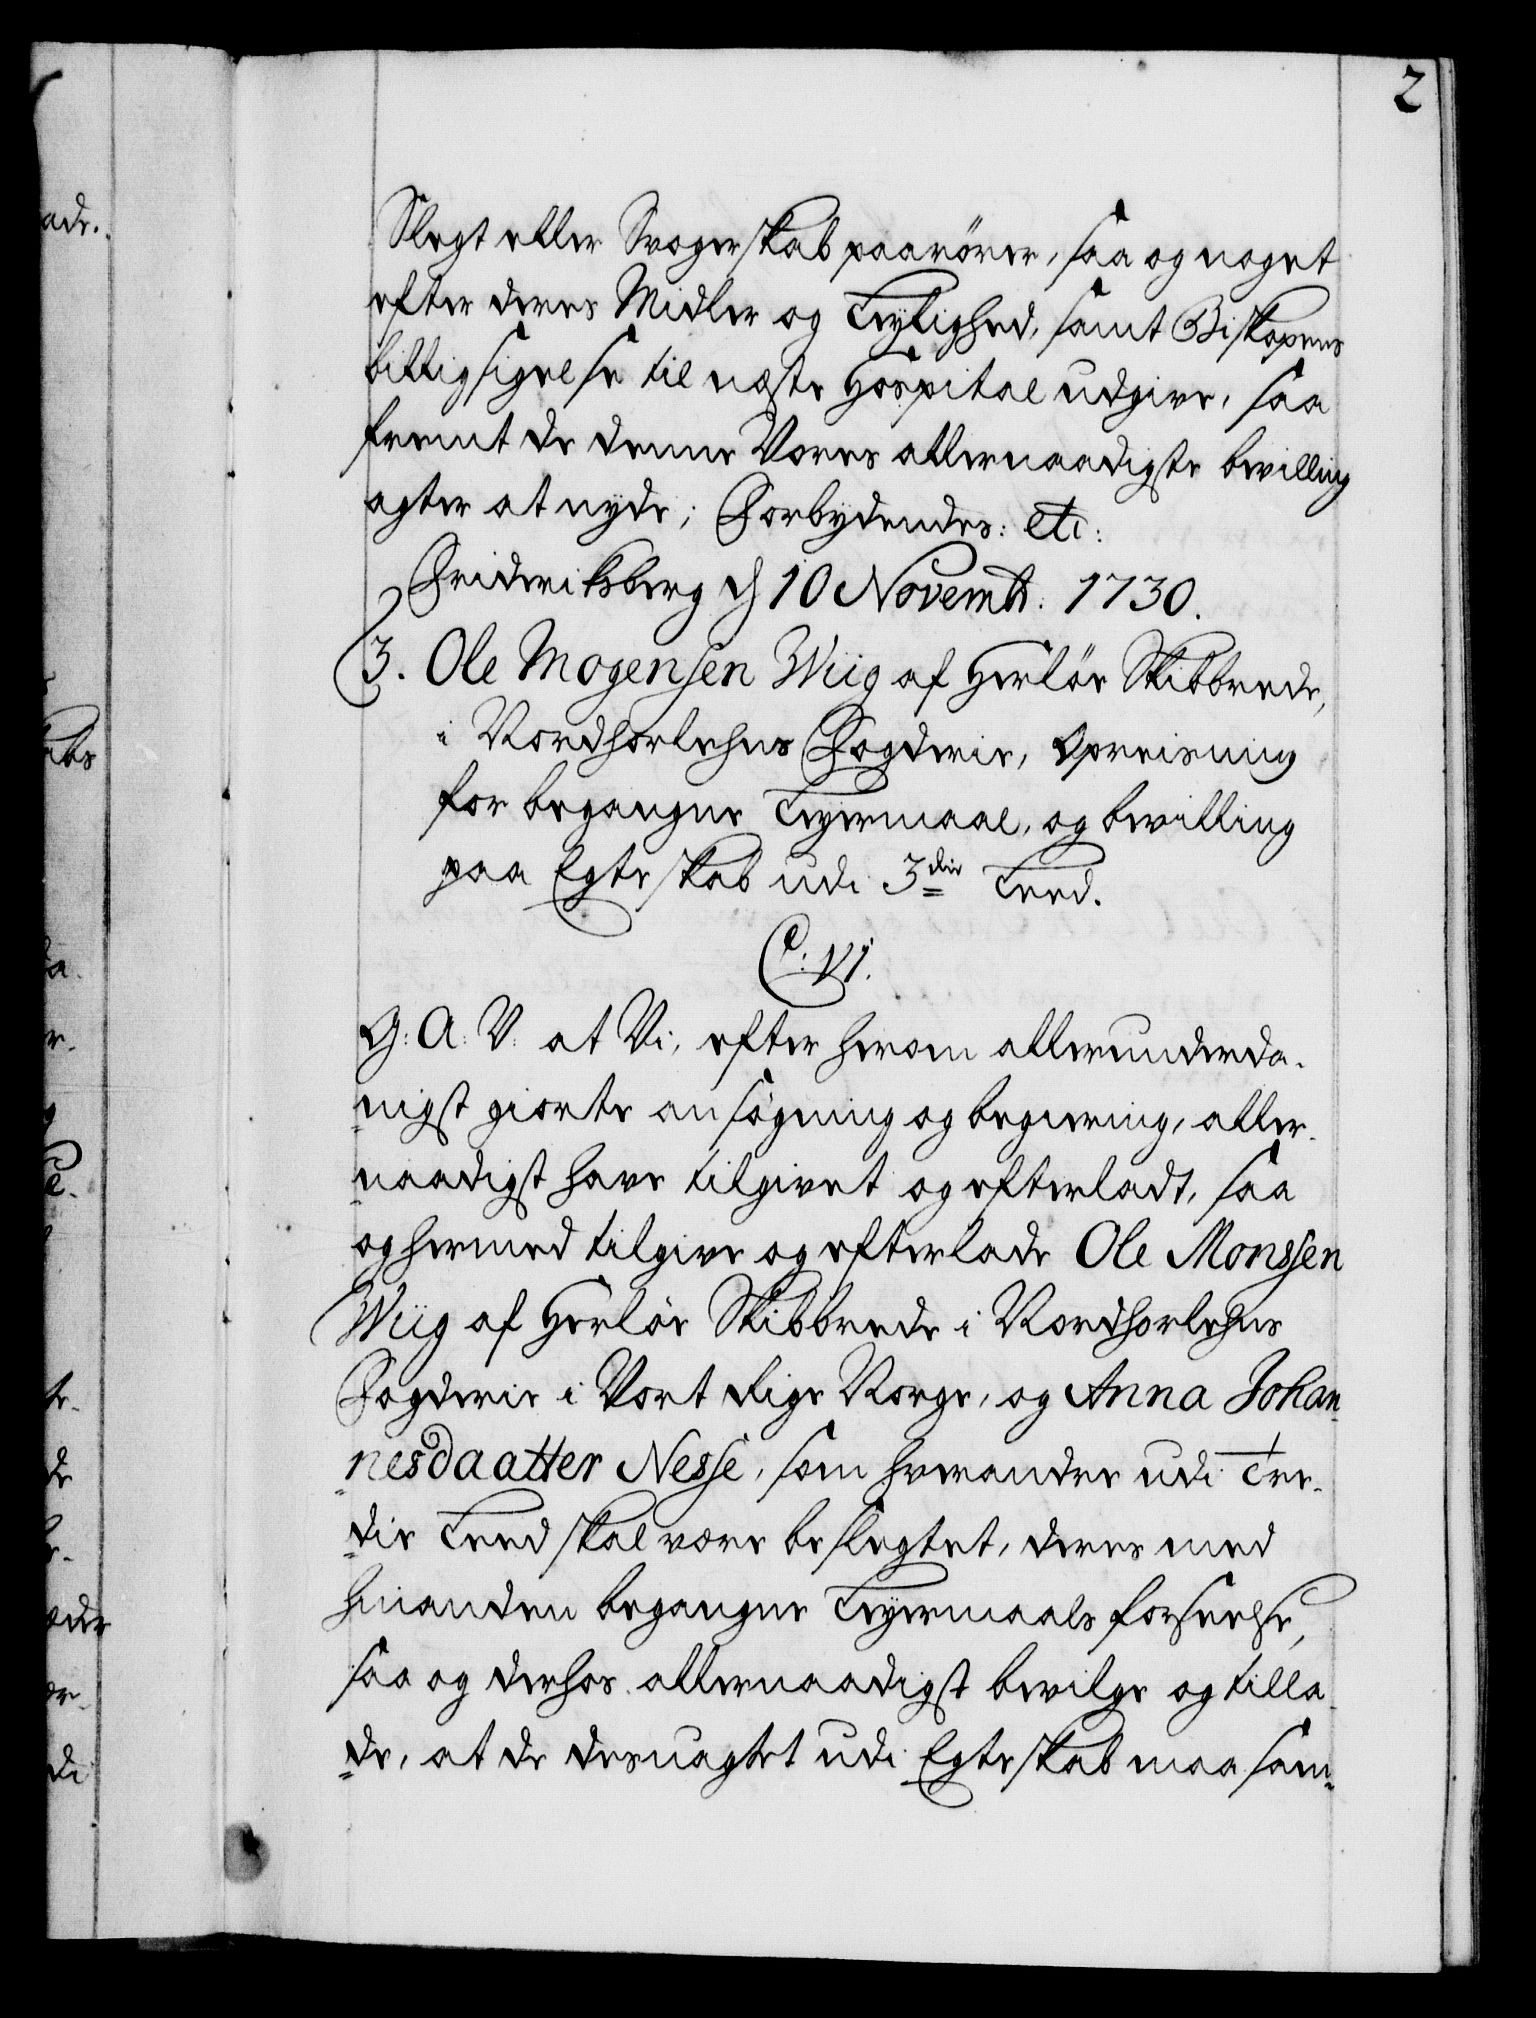 2
Slegt eller Svogerskab paarörer, saa og noget
efter deres Midler og Leylighed, samt Biskopens
billigsigelse til næste Hospital udgive, saa
fremt de denne Vores allernaadigste bevilling
agter at nyde; Forbydendes: etc:
Frideriksberg d 10 Novembr: 1730.
3. Ole Mogensen Wiig af Herlöe Skibbrede,
i Nordhorlehns Fogderie, Opreisning
for begangne Leyermaal, og bevilling
paa Egteskab udi 3die Leed.
C: VI.
G: A: V: at Vi, efter herom allerunderda-
nigst giorte ansögning og begiering, aller-
naadigst have tilgivet og efterladt, saa
og hermed tilgive og efterlade Ole Monssen
Wiig af Herlöe Skibbrede i Nordhorlehns
Fogderie i Vort Rige Norge, og Anna Johan-
nesdaatter Nesse, som hverandre udi Tre-
die Leed skal være beslegtet, deres med
hinanden begangne Leyermaals forseelse,
saa og derhos allernaadigst bevilge og tilla-
de, at de desuagtet udi Egteskab maa sam-
adr.